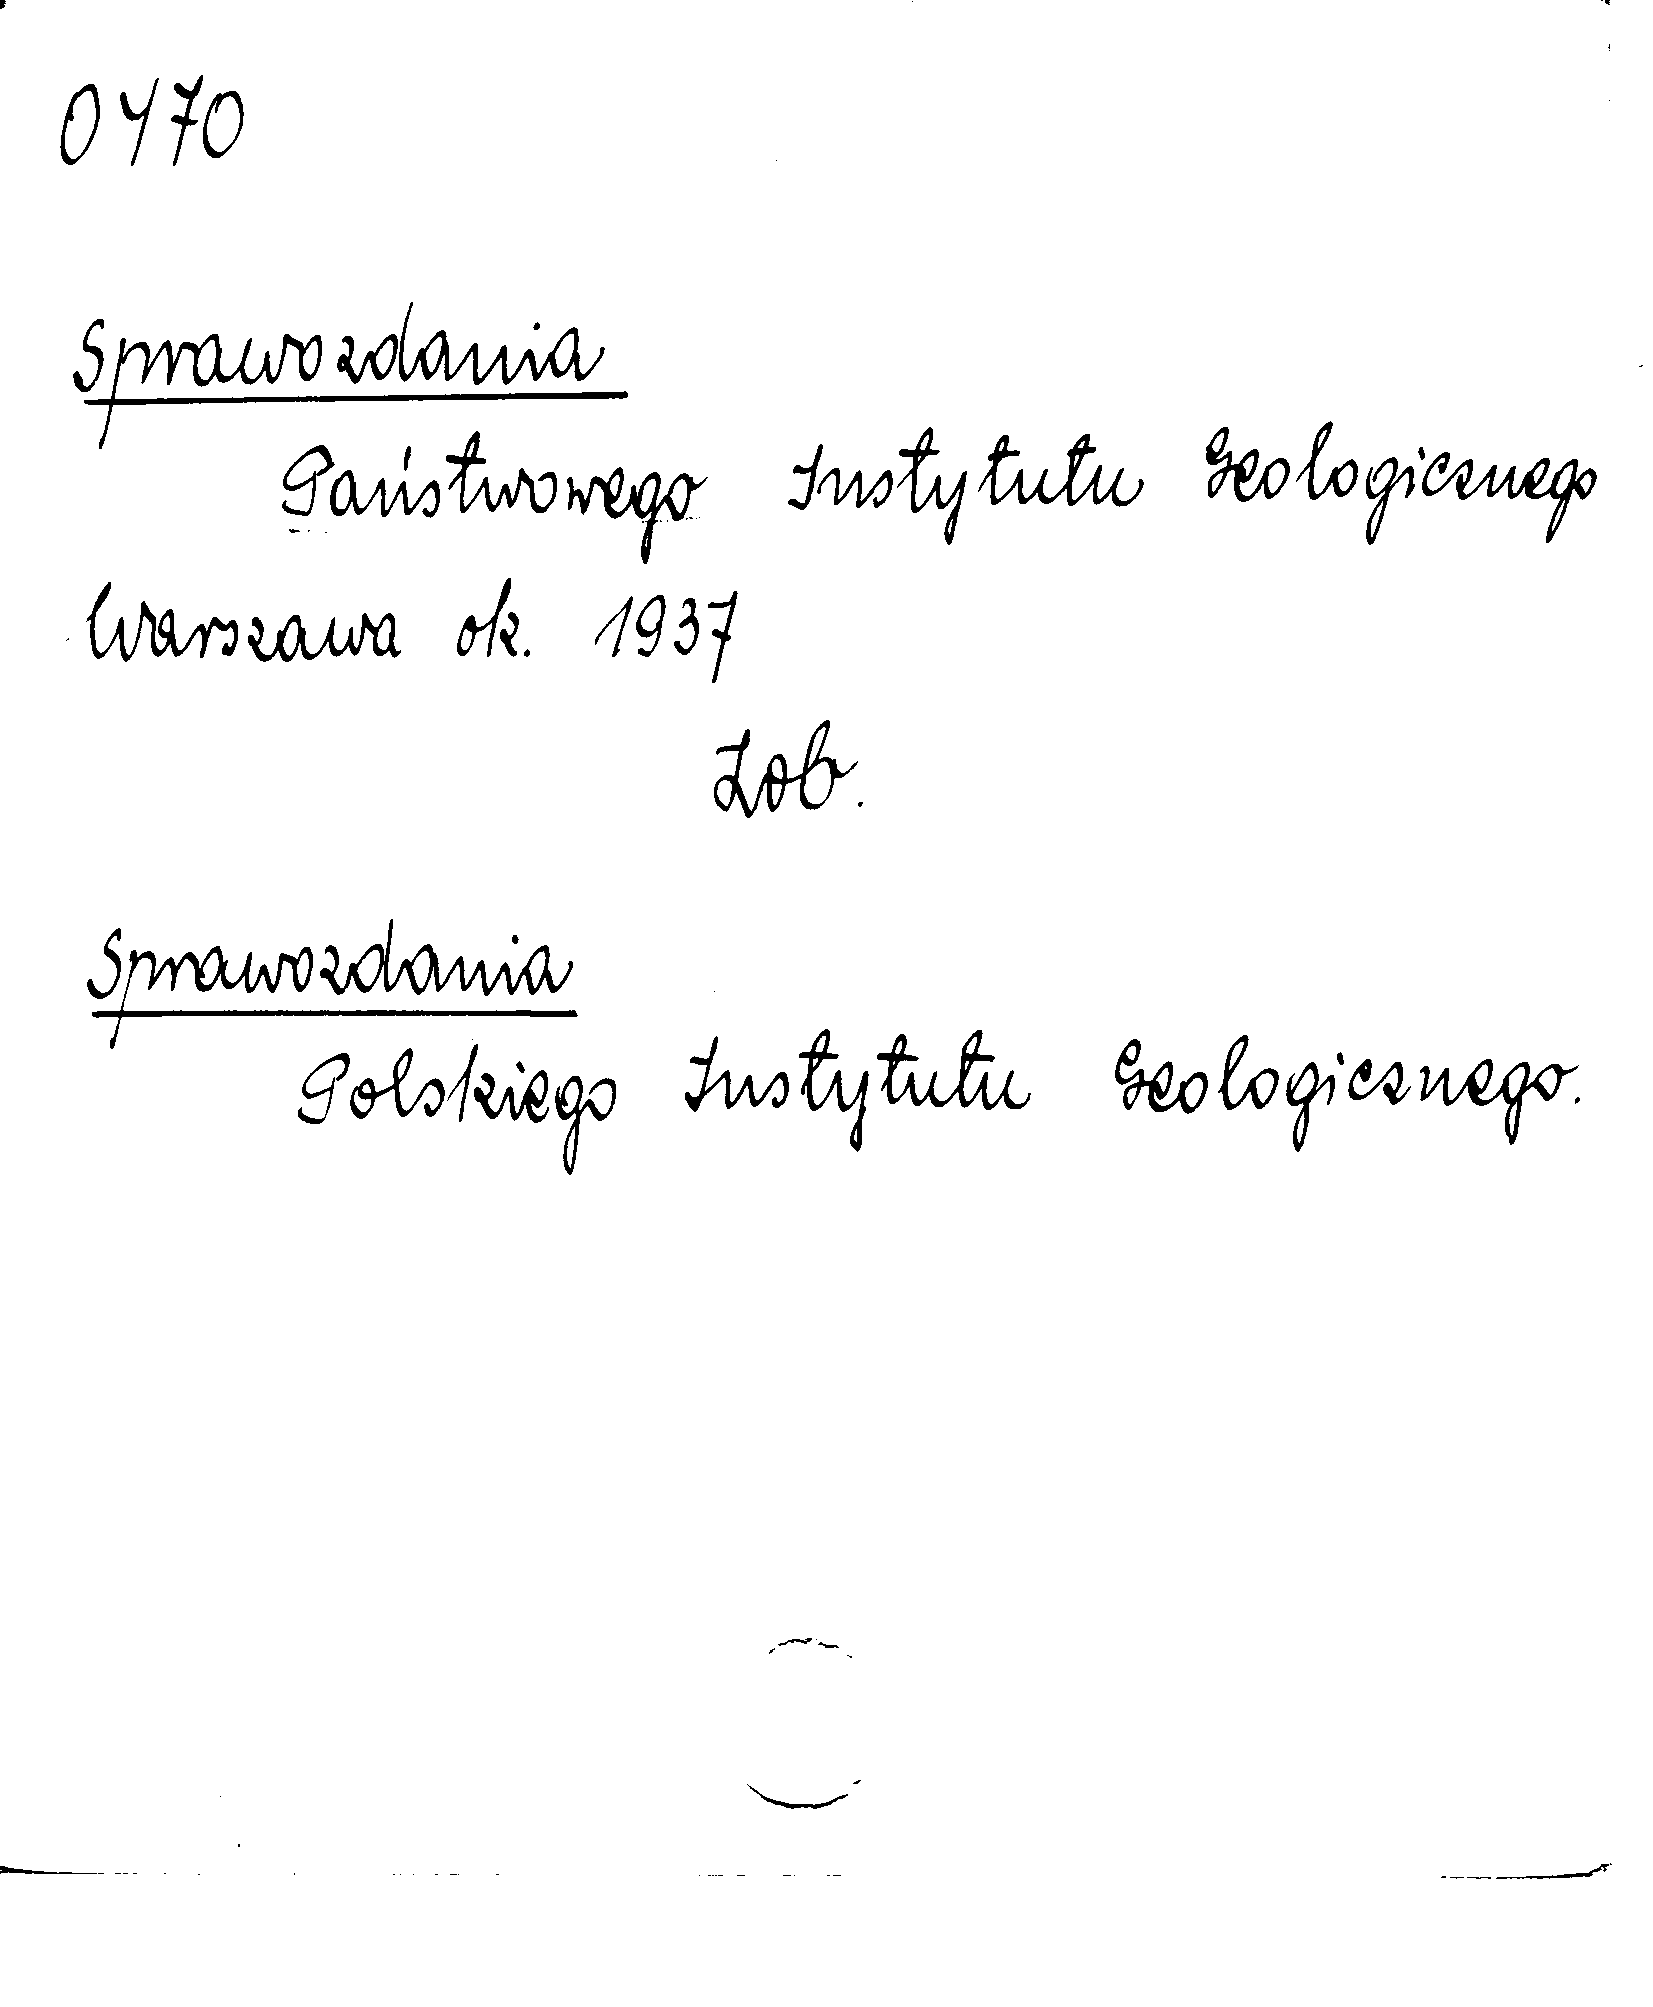 0470
Sprawozdania
Państwowego Instytutu Geologicznego
Warszawa ok. 1937
Zob.
Sprawozdania
Polskiego Instytutu Geologicznego.